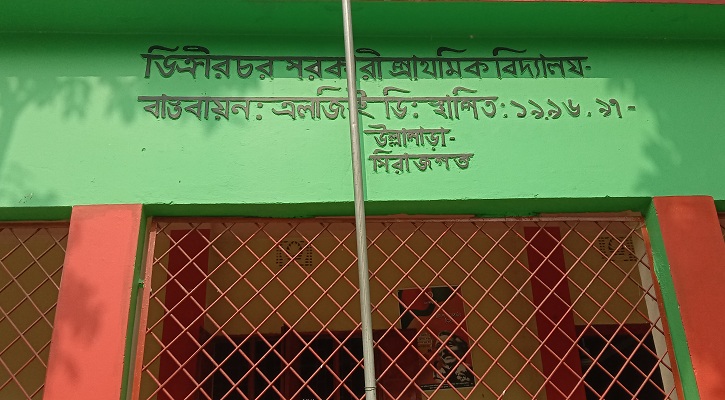 ডিক্রীরচর সরকারী প্রাথমিক বিদ্যালয়-
বাস্তবায়ন: এলজিইডি: স্থাপিত: ১৯৯৬.৯৭-
উল্লাপাড়া-
সিরাজগঞ্জ